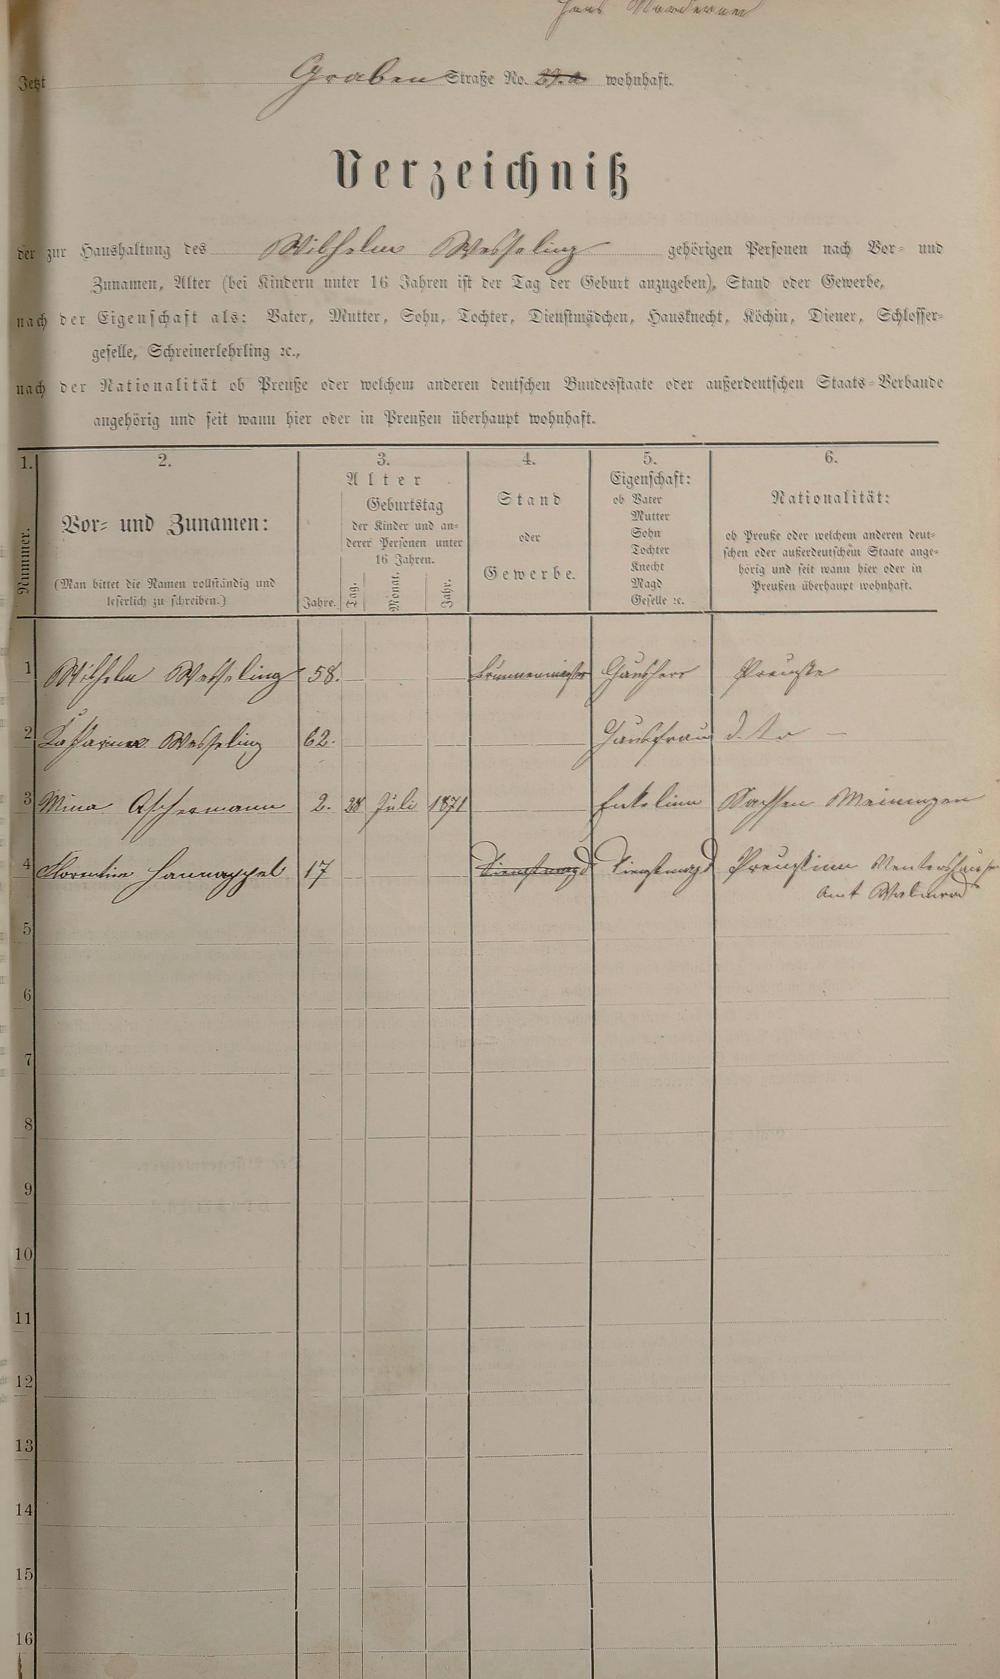 Haus Norderney
Jetzt Graben Straße No. 29.a wohnhaft.
Verzeichniß
der zur Haushaltung des Wilhelm Wesseling gehörigen Personen nach Vor- und
Zunamen, Alter (bei Kindern unter 16 Jahren ist der Tag der Geburt anzugeben), Stand oder Gewerbe,
nach der Eigenschaft als: Vater, Mutter, Sohn, Tochter, Dienstmädchen, Hausknecht, Köchin, Diener, Schlosser-
geselle, Schreinerlehrling ꝛc.,
nach der Nationalität ob Preuße oder welchem anderen deutschen Bundesstaate oder außerdeutschen Staats-Verbande
angehörig und seit wann hier oder in Preußen überhaupt wohnhaft.
1.
Nummer.
2.
Vor- und Zunamen:
(Man bittet die Namen vollständig und
leserlich zu schreiben.)
3.
Alter
Geburtstag
der Kinder und an-
derer Personen unter
16 Jahren.
Jahre. Tag. Monat. Jahr.
4.
Stand
oder
Gewerbe.
5.
Eigenschaft:
ob Vater
Mutter
Sohn
Tochter
Knecht
Magd
Geselle ꝛc.
6.
Nationalität:
ob Preuße oder welchem anderen deut-
schen oder außerdeutschem Staate ange-
hörig und seit wann hier oder in
Preußen überhaupt wohnhaft.
1 Wilhelm Wesseling 58. Brunnenmeister Hausherr Preuße
2 Katharina Wesseling 62. Hausfrau d. to –
3 Mina Aschermann 2. 28 Juli 1871 Enkelinn Sachsen Meiningen
4 Florentine Hannappel 17 Dienstmagd Dienstmagd Preußinn
Amt
5
6
7
8
9
10
11
12
13
14
15
16